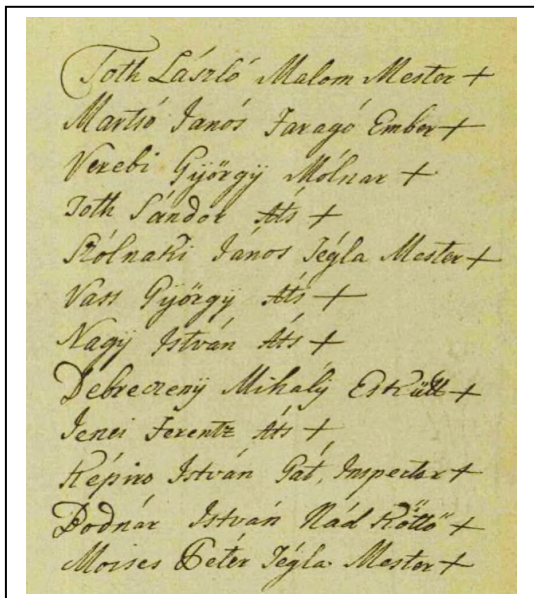 Toth László Malom Mester +
Martsó Janós Faragó Ember +
Verebi Győrgÿ Mólnar +
Toth Sándor Áts +
Szólnaki János Tégla Mester +
Vass Győrgÿ Áts +
Nagÿ István Áts +
Debreczenÿ Mihálÿ Eskütt +
Jenei Ferentz Áts +
Képiro István Gát, Inspector +
Bodnár István Nád Kőttő +
Moises Péter Tégla Mester +